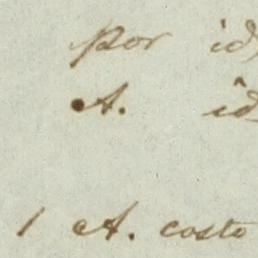 por id
A. id
1 A. costo